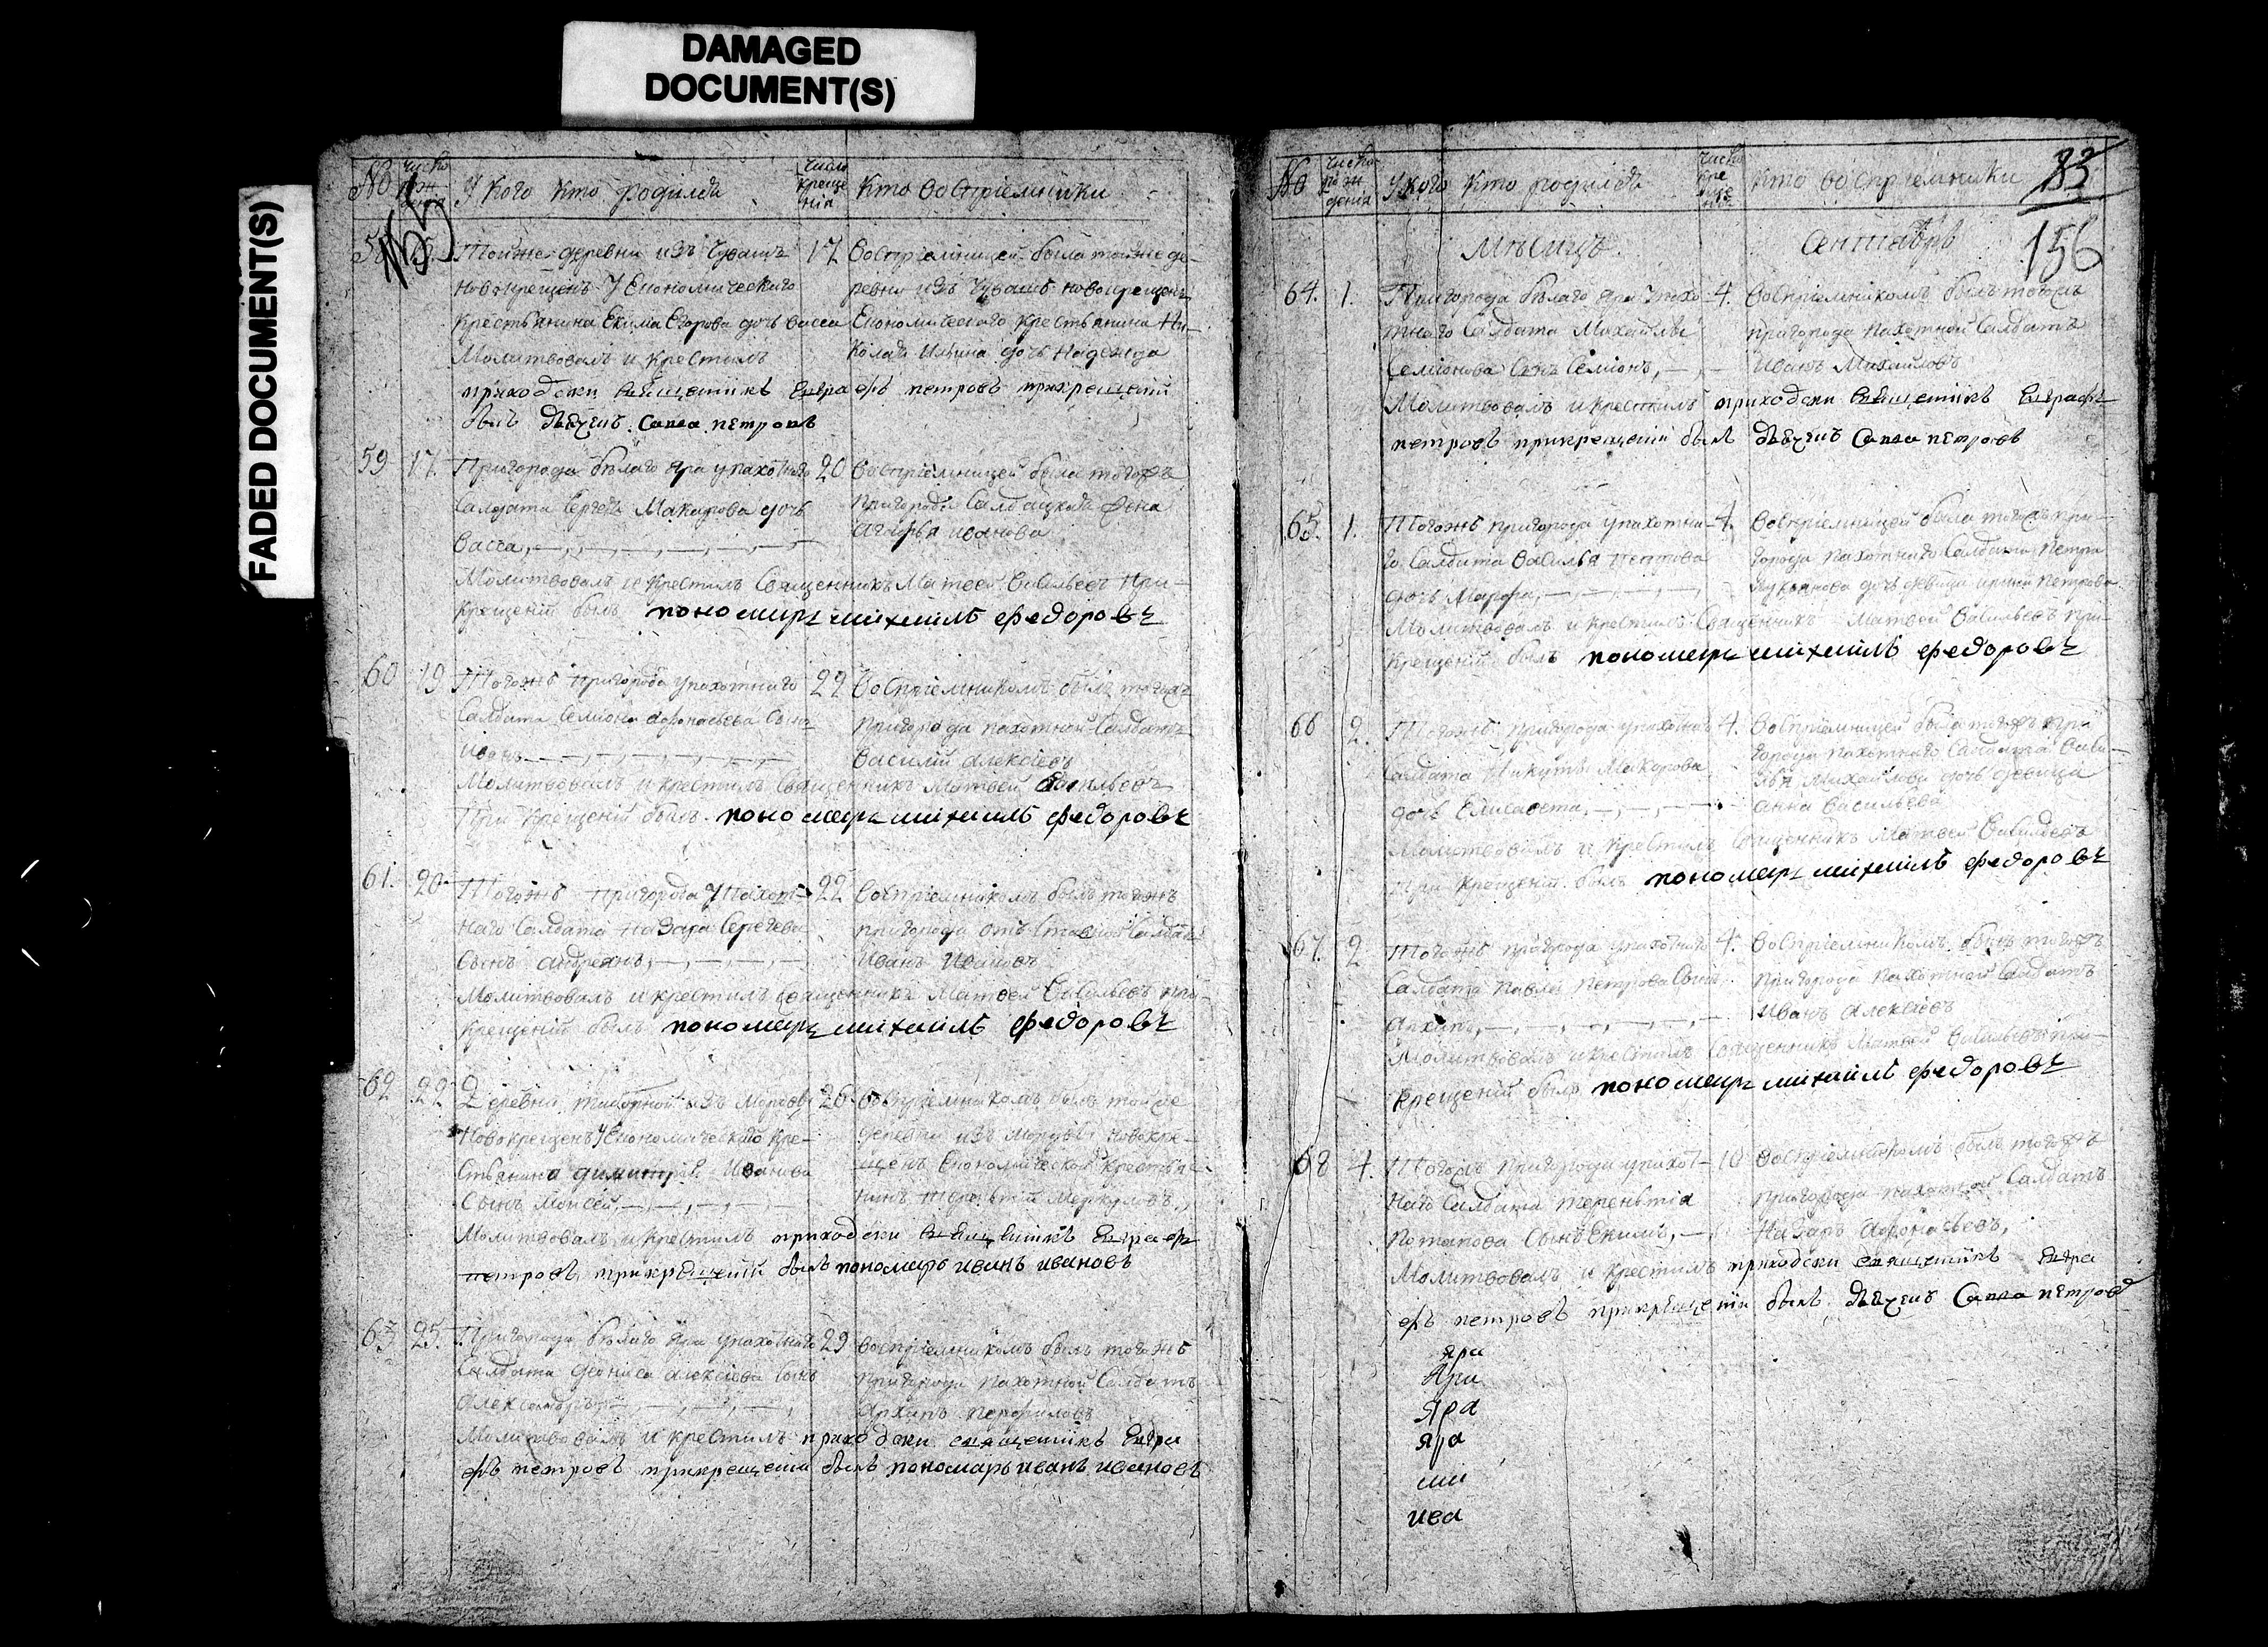 DAMAGED
DOCUMENT(S)
FADED DOCUMENT(S)
№ число рождения У кого кто родился число крещения кто восприемники
58 Тойже деревни изъ Чувашъ 17 восприемницей была тойже де-
новокрещенъ У Економическаго ревни изъ Чувашъ новокрещенъ
крестьянина Екима Егорова дочь васса Економическаго крестьянина Ни-
Молитвовалъ и крестилъ колая Ильина дочь Надежда
приходски священникъ Евграфъ петровъ прикрещении
былъ дьячекъ Савва петровъ
59 17. Пригорода белаго Яра упахотнаго 20 восприемницей была тогожъ
Салдата Сергея Макарова дочь пригорода Салдацкая жена
Васса, Агафья иванова
Молитвовалъ и крестилъ Священникъ Матвей Васильевъ При-
крещении былъ пономарь михаилъ федоровъ
60 19 Тогожъ пригорода упахотнаго 22 восприемникомъ былъ тогожъ
Салдата Семиона Афонасьева Сынъ пригорода пахотной Салдатъ
Иванъ Василий Алексеевъ
Молитвовалъ и крестилъ Священникъ Матвей Васильевъ
При крещении былъ пономарь михаилъ федоровъ
61. 20. Тогожъ пригорода упахот- 22 восприемникомъ былъ тогожъ
наго Салдата Назара Сергеева пригорода отставной Салдатъ
Сынъ андреянъ, Иванъ Ивановъ
Молитвовалъ и крестилъ священникъ Матвей Васильевъ при-
крещении былъ пономарь михаилъ федоровъ
62 22. Деревни изъ Мордвы 26 восприемникомъ былъ тойже
Новокрещенъ У Економическаго кре- деревни изъ Мордвы новокре-
стьянина Иванова щенъ Економической крестья-
Сынъ Моисей, нинъ Терентий Меркуловъ,
Молитвовалъ и крестилъ приходски священникъ Евграфъ
петровъ прикрещении былъ пономарь иванъ ивановъ
63 25. Пригорода белаго Яра упахотнаго 29 восприемникомъ былъ тогожъ
Салдата Дениса Алексеева Сынъ пригорода пахотной Салдатъ
Александръ Архипъ
Молитвовалъ и крестилъ приходски священникъ Евгра
фъ петровъ прикрещении былъ пономарь иванъ ивановъ
№ число рождения У кого кто родился число крещения кто восприемники 83
Месяцъ Сентябрь 156
64. 1. Пригорода белаго Яра упахо- 4. восприемникомъ былъ тогожъ
тнаго Салдата Михайлы пригорода пахотной Салдатъ
Семионова Сынъ Семионъ, Иванъ Михайловъ
Молитвовалъ и крестилъ приходски священникъ Евграфъ
петровъ прикрещении былъ дьячекъ Савва петровъ
65. 1. Тогожъ пригорода упахотна- 4. восприемницей была тогожъ при-
го Салдата Василья Петрова города пахотнаго Салдата Петра
дочь Марфа, Лукьянова дочь девица ирина Петрова
Молитвовалъ и крестилъ Священникъ Матвей Васильевъ при-
крещении былъ пономарь михаилъ федоровъ
66 2. Тогожъ пригорода упахотнаго 4. восприемницей была тогожъ при
Салдата Никиты Макарова города пахотнаго Салдата Васи-
дочь Елисавета, лья Михайлова дочь девица
анна васильева
Молитвовалъ и крестилъ Священникъ Матвей Васильевъ
При крещении былъ пономарь михаилъ федоровъ
67. 2 Тогожъ пригорода упахотнаго 4. восприемникомъ былъ тогожъ
Салдата Павла Петрова Сынъ пригорода пахотной Салдатъ
Архипъ, Иванъ Алексеевъ
Молитвовалъ и крестилъ Священникъ Матвей Васильевъ при-
крещении былъ пономарь михаилъ федоровъ
68 4. Тогожъ пригорода упахот- 10 восприемникомъ былъ тогожъ
наго Салдата Терентия пригорода пахотной Салдатъ
Потапова Сынъ Екимъ, Назаръ Афонасьевъ,
Молитвовалъ и крестилъ приходски священникъ Евгра
фъ петровъ прикрещении былъ дьячекъ Савва петровъ
яра
Яра
Яра
яра
ми
ива